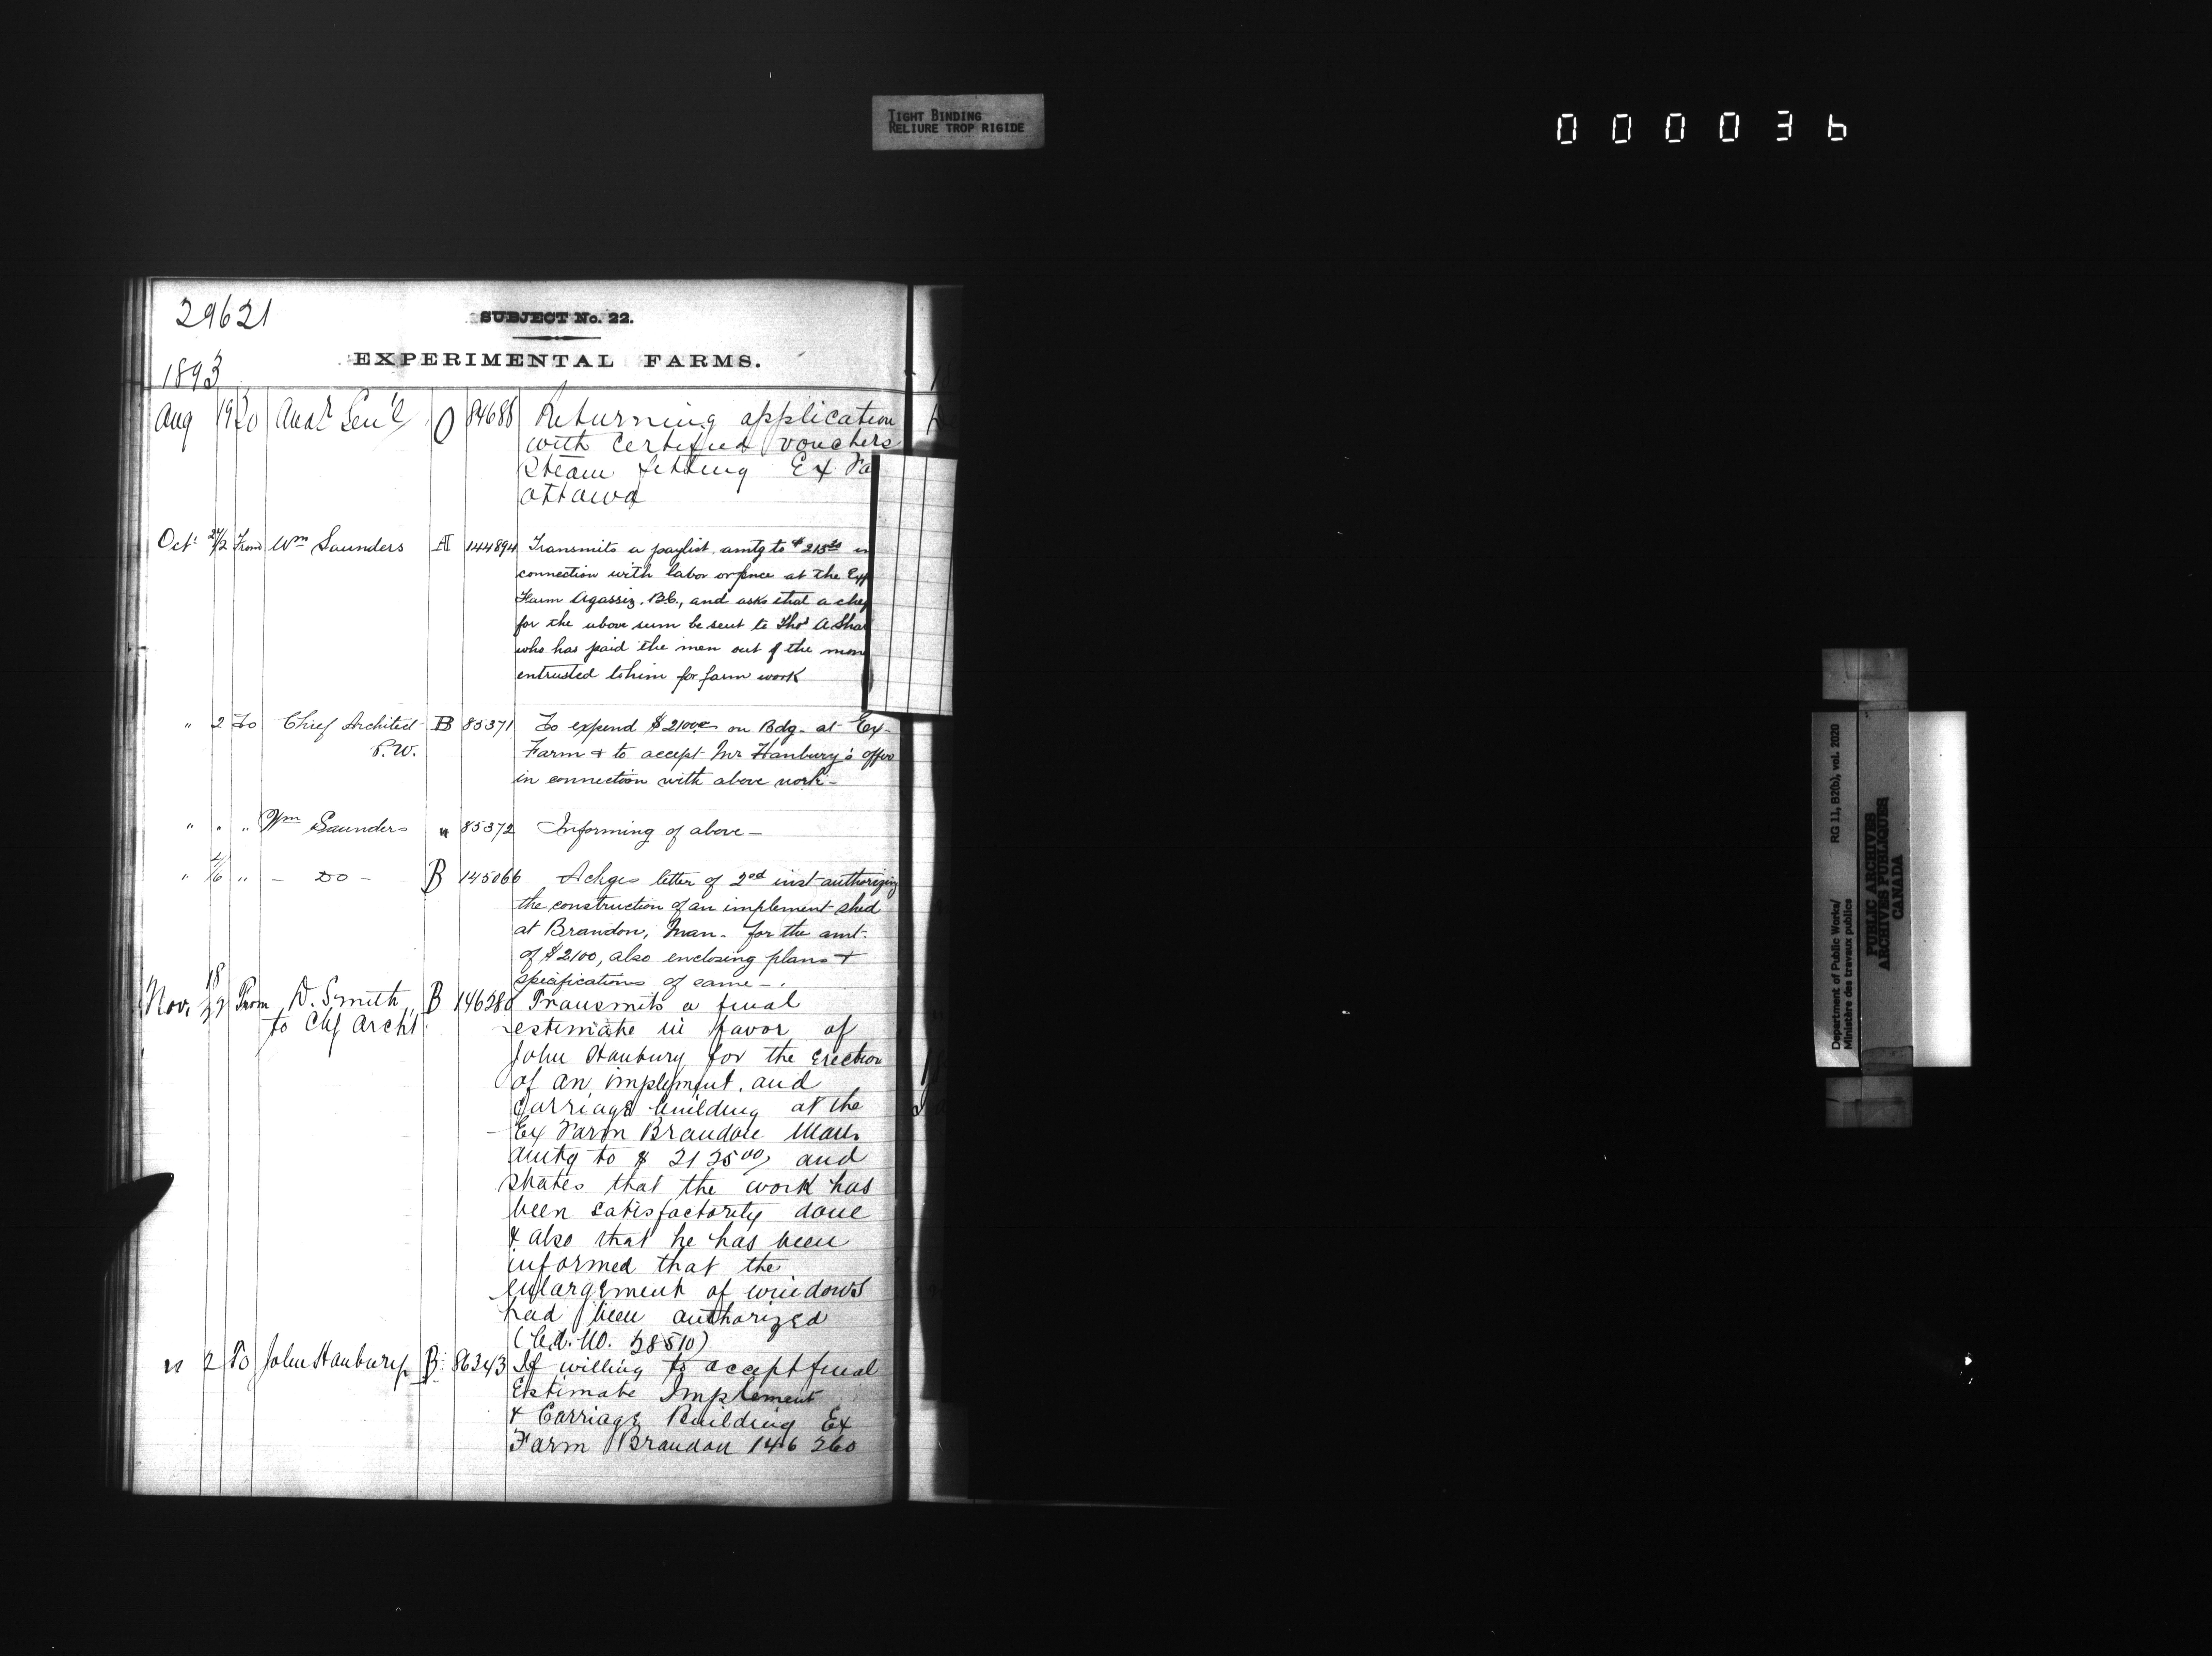 TIGHT BINDING
RELIURE TROP RIGIDE
000036
29621
SUBJECT No. 22.
EXPERIMENTAL FARMS.
1893
Aug 19 To Audr Gen'l O 84688 Returning application
with certified vouchers
Steam fitting Ex Fa
Ottawa
Oct From Wm Saunders A 144894 Transmits a paylist amtg to $ in
connection with labor at the Exp
Farm Agassiz, B.C., and asks that a cheq
for the above sum be sent to Thos A Shar
who has paid the men out of the mon
entrusted to him for farm work
" 2 To Chief Architect B 85371 To expend $2100 on Bdg. at Ex.
P.W. Farm & to accept Mr Hanbury's offer
in connection with above work -
" " " Wm Saunders " 85372 Informing of above -
" 4/6 " - Do - B 145066 Ackges letter of 2nd inst authorizing
the construction of an implement shed
at Brandon, Man. for the amt.
of $2100, also enclosing plans &
specifications of same -
Nov. From D. Smith, B Transmits a final
to Chf Archt. estimate in favor of
John Hanbury for the Erection
of an implement and
Carriage building at the
Ex Farm Brandon Man.
amtg to $ 2125 00, and
states that the work has
been satisfactorily done
& also that he has been
informed that the
enlargement of windows
had been authorized
28510)
" 2 To John Hanbury B 86343 If willing to accept final
Estimate Implement
& Carriage Building Ex
Farm Brandon 146 260
Department of Public Works/
Ministère des travaux publics
RG 11, B2(b), vol. 2020
PUBLIC ARCHIVES
ARCHIVES PUBLIQUES
CANADA